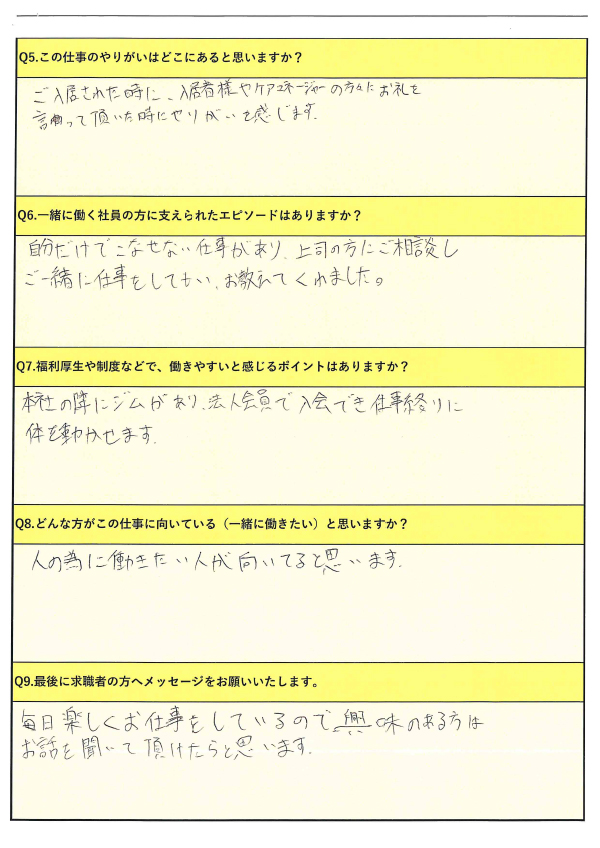 Q5.この仕事のやりがいはどこにあると思いますか？
ご入居された時に、入居者様やケアマネージャーの方々にお礼を
言って頂いた時にやりがいを感じます.
Q6.一緒に働く社員の方に支えられたエピソードはありますか？
自分だけでこなせない仕事があり、上司の方にご相談し
ご一緒に仕事をしてもらい、お教えてくれました。
Q7.福利厚生や制度などで、働きやすいと感じるポイントはありますか？
本社の隣にジムがあり、法人会員で入会でき仕事終りに
体を動かせます.
Q8.どんな方がこの仕事に向いている（一緒に働きたい）と思いますか？
人の為に働きたい人が向いてると思います.
Q9.最後に求職者の方へメッセージをお願いいたします。
毎日楽しくお仕事をしているので、興味のある方は
お話を聞いて頂けたらと思います.